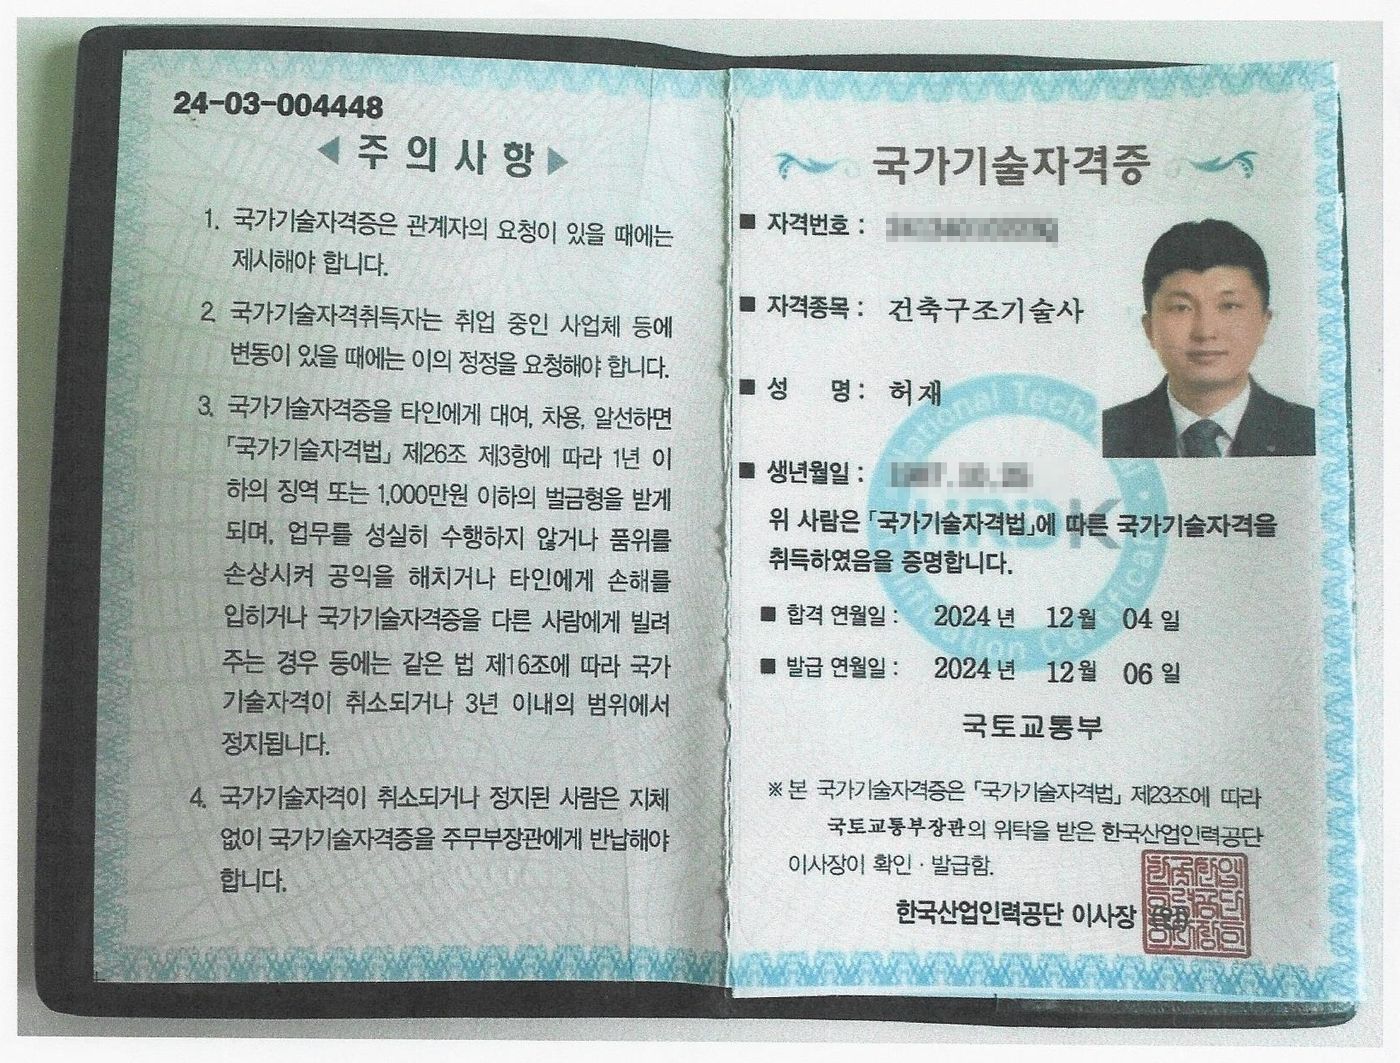 24-03-004448
◀ 주의사항 ▶
1. 국가기술자격증은 관계자의 요청이 있을 때에는
제시해야 합니다.
2. 국가기술자격취득자는 취업 중인 사업체 등에
변동이 있을 때에는 이의 정정을 요청해야 합니다.
3. 국가기술자격증을 타인에게 대여, 차용, 알선하면
「국가기술자격법」 제26조 제3항에 따라 1년 이
하의 징역 또는 1,000만원 이하의 벌금형을 받게
되며, 업무를 성실히 수행하지 않거나 품위를
손상시켜 공익을 해치거나 타인에게 손해를
입히거나 국가기술자격증을 다른 사람에게 빌려
주는 경우 등에는 같은 법 제16조에 따라 국가
기술자격이 취소되거나 3년 이내의 범위에서
정지됩니다.
4. 국가기술자격이 취소되거나 정지된 사람은 지체
없이 국가기술자격증을 주무부장관에게 반납해야
합니다.
국가기술자격증
■ 자격번호 :
■ 자격종목 : 건축구조기술사
■ 성 명 : 허재
■ 생년월일 :
위 사람은 「국가기술자격법」에 따른 국가기술자격을
취득하였음을 증명합니다.
■ 합격 연월일 : 2024 년 12 월 04 일
■ 발급 연월일 : 2024 년 12 월 06 일
국토교통부
※ 본 국가기술자격증은 「국가기술자격법」 제23조에 따라
국토교통부장관의 위탁을 받은 한국산업인력공단
이사장이 확인 · 발급함.
한국산업인력공단 이사장